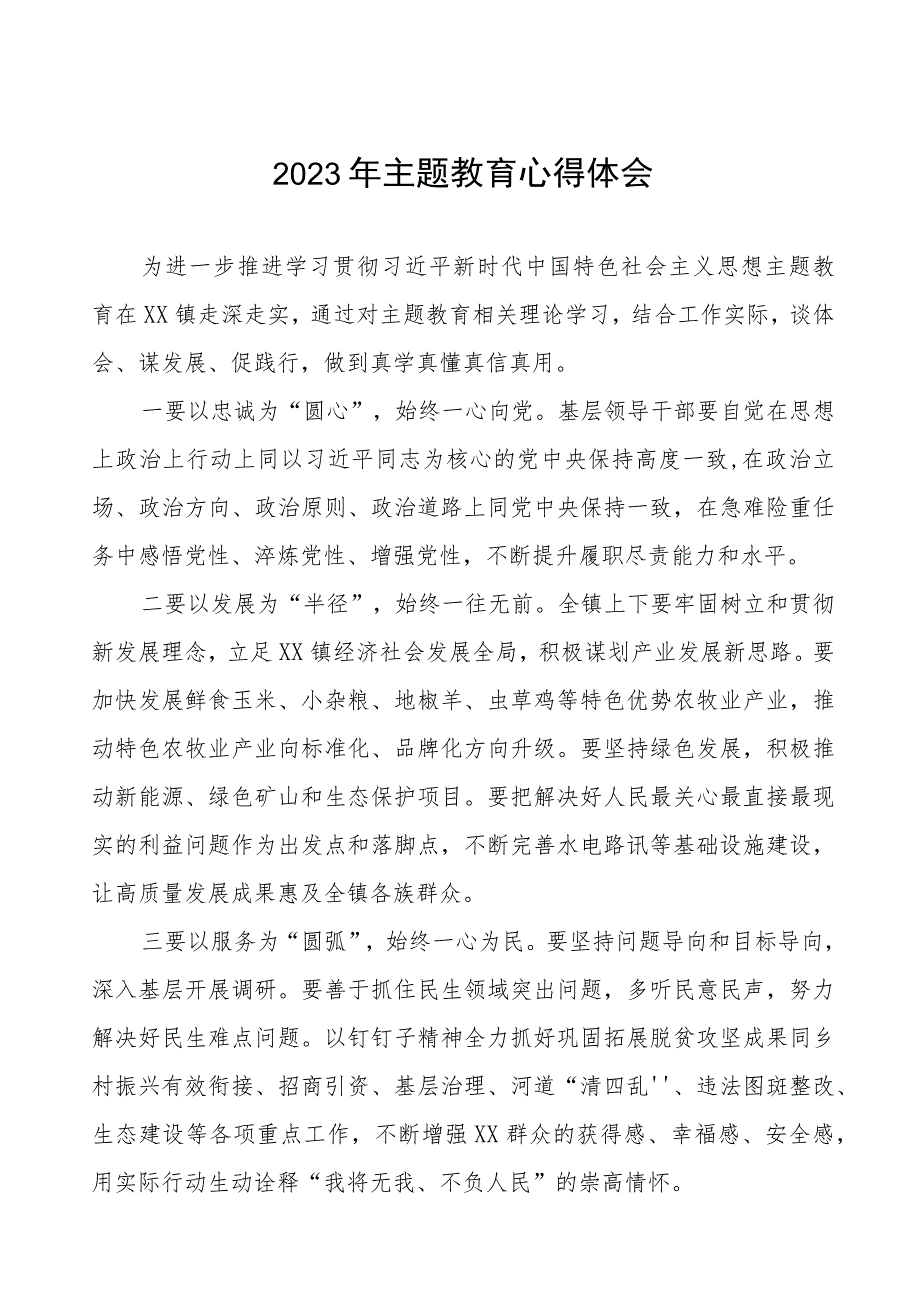 2023年主题教育心得体会
为进一步推进学习贯彻习近平新时代中国特色社会主义思想主题教
育在XX镇走深走实，通过对主题教育相关理论学习，结合工作实际，谈体
会、谋发展、促践行，做到真学真懂真信真用。
一要以忠诚为“圆心”，始终一心向党。基层领导干部要自觉在思想
上政治上行动上同以习近平同志为核心的党中央保持高度一致,在政治立
场、政治方向、政治原则、政治道路上同党中央保持一致，在急难险重任
务中感悟党性、淬炼党性、增强党性，不断提升履职尽责能力和水平。
二要以发展为“半径”，始终一往无前。全镇上下要牢固树立和贯彻
新发展理念，立足XX镇经济社会发展全局，积极谋划产业发展新思路。要
加快发展鲜食玉米、小杂粮、地椒羊、虫草鸡等特色优势农牧业产业，推
动特色农牧业产业向标准化、品牌化方向升级。要坚持绿色发展，积极推
动新能源、绿色矿山和生态保护项目。要把解决好人民最关心最直接最现
实的利益问题作为出发点和落脚点，不断完善水电路讯等基础设施建设，
让高质量发展成果惠及全镇各族群众。
三要以服务为“圆弧”，始终一心为民。要坚持问题导向和目标导向，
深入基层开展调研。要善于抓住民生领域突出问题，多听民意民声，努力
解决好民生难点问题。以钉钉子精神全力抓好巩固拓展脱贫攻坚成果同乡
村振兴有效衔接、招商引资、基层治理、河道“清四乱''、违法图斑整改、
生态建设等各项重点工作，不断增强XX群众的获得感、幸福感、安全感，
用实际行动生动诠释“我将无我、不负人民”的崇高情怀。